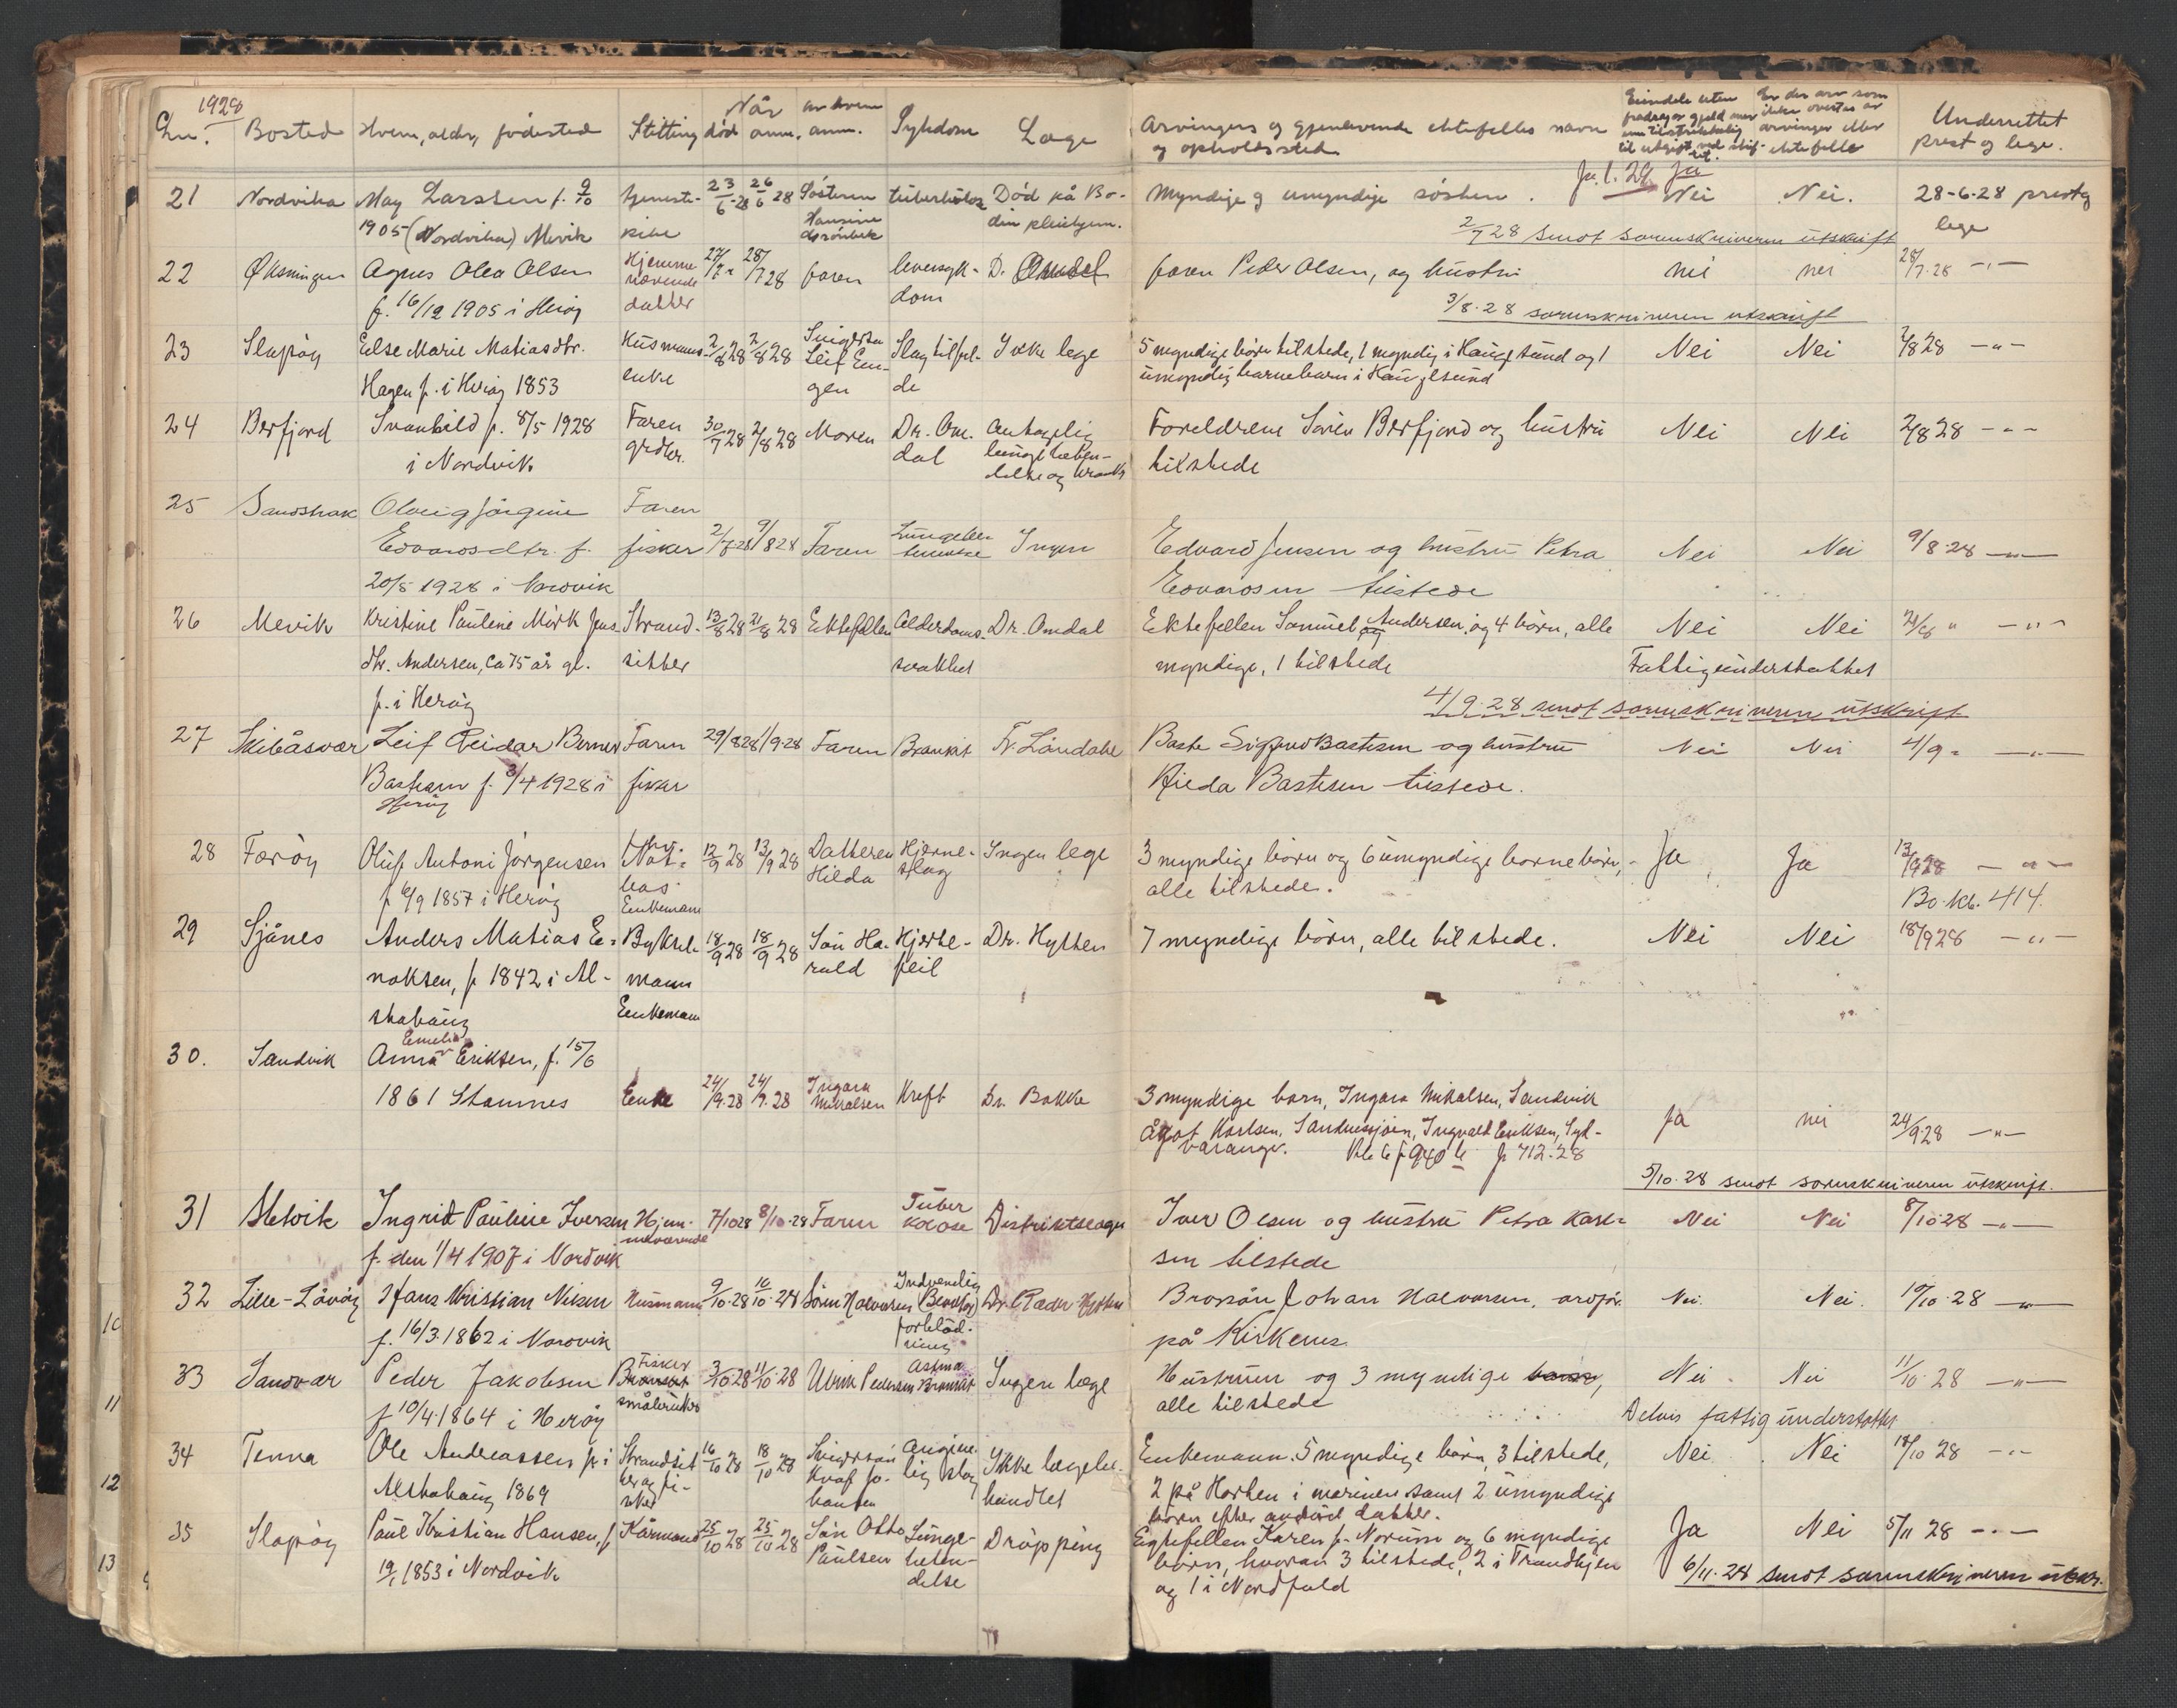 1928
Lnr. Bosted Hvem, alder, fødested Stilling Når død anm. av hvem anm. Sykdom Læge Arvingers og gjenlevende ektefelles navn og opholdssted Er der arv som ikke overtas av arvinger eller ektefelle Underrettet prest og lege.
21 Nordvika May Larssen f. 9/10 tjeneste- 23/6-28 26/6 28 Søsteren tuberkulose Død på Bo- Myndige og umyndige søsken. Ja Nei Nei. 28-6-28 prest og
1905 (Nordvika) Mevik pike Hansine din pleiehjem. lege
2/7 28 sendt sorenskriveren utskrift
22 Øksningen Agnes Olea Olsen Hjemme 27/7 28/7 28 faren leversyk- Dr. Omdal faren Peder Olsen, og hustru nei nei 28/7.28 -"-
f. 16/12 1905 i Herøy værende datter dom
3/8.28 sorenskriveren utskrift
23 Slapøy Else Marie Matiasdtr. Husmans- 2/8 28 2/8 28 Svigersøn Slagtilfel- Ikke lege 5 myndige børn tilstede, 1 myndig i Haugesund og 1 Nei Nei 2/8 28 -"-
Hagen f. i Herøy 1853 enke Leif Engen de umyndig barnebarn i Haugesund
24 Berfjord Svanhild f. 8/5 1928 Faren 30/7 28 2/8 28 Moren Dr. Om- Antagelig Foreldrene Søren Berfjord og hustru Nei Nei 2/8 28 -"-
i Nordvik grdbr. dal lungebeten- tilstede
delse og
25 Sandstrak Olveig Jørgine Faren
Edvardsdtr. f. fisker 2/8-28 9/8 28 Faren Lungebe- Ingen Edvard Jensen og hustru Petra Nei Nei 9/8-28 -"-
20/5 1928 i Nordvik tennelse Edvardsen tilstede
26 Mevik Kristine Pauline Mørk Jens- Strand- 13/8 28 21/8 28 Ektefellen Alderdoms- Dr. Omdal Ektefellen Samuel Andersen, og 4 børn, alle Nei Nei 21/8 " -"-
dtr. Andersen, ca 75 år gl. sitter svakhet myndige, 1 tilstede Fattigunderstøttet
f. i Herøy
4/9.28 sendt sorenskriveren utskrift
27 Skibåsvær Leif Reidar Berner Faren 29/8 28 1/9-28 Faren Bronkit Baste Sigfred Bastesen og hustru Nei Nei 4/9 " -"-
Bastesen f. 3/4 1928 i fisker Hilda Bastesen tilstede.
Herøy
28 Færøy Oluf Antoni Jørgensen Not- 12/9 28 13/9 28 Datteren Hjerne- Ingen lege 3 myndige børn og 6 umyndige barnebørn, Ja Ja 13/9 28 -"-
f 6/9 1857 i Herøy bas Hilda slag alle tilstede. Bo. kb. 414.
Enkemann
29 Sjånes Anders Matias E- Byksel- 18/9 28 18/9 28 Søn Ha- Hjerte- Dr. Hytten 7 myndige børn, alle tilstede. Nei Nei 18/9 28 -"-
noksen, f 1842 i Al- mann rald feil
stahaug Enkemann
30. Sandvik Anna Emelie Eriksen, f. 15/6
1861 Stamnes Enke 24/9.28 24/9.28 Ingara Mikalsen Kreft Dr. Bakke 3 myndige barn, Ingara Mikalsen, Sandvik Ja nei 24/9.28 -"-
Ågot Karlsen, Sandnessjøen, Ingvald Eriksen, Syd-
varanger.
5/10.28 sendt sorenskriveren utskrift.
31 Mevik Ingrid Pauline Iversen Hjem- 7/10 28 8/10-28 Faren Tuber Distriktslægen Iver Olsen og hustru Petra Karl- Nei Nei 8/10 28 -"-
f. den 1/4 1907 i Nordvik meværende kolose sen tilstede
32 Lille-Løvøy Hans Kristian Nilsen Husmann 9/10-28 10/10-28 Søren Halvorsen Indvendig Dr. Peder Hytten Brorsøn Johan Halvorsen, Nei. Nei. 10/10.28 -"-
f. 16/3.1862 i Nordvik forblød- ning på Kirkenes
33 Sandvær Peder Jakobsen Fisker 3/10-28 11/10-28 Ulrik Pedersen Astma Bronkit Ingen læge Hustruen og 3 myndige barn, Nei Nei 11/10.28 -"-
f 10/4.1864 i Herøy småbruker alle tilstede Delvis fattigunderstøttet
34 Tenna Ole Andreassen f. i Strandsit 16/10 28 18/10 28 Svigersøn Angive- Ikke lægebe- Enkemann. 5 myndige børn, 3 tilstede, Nei Nei 18/10 28 -"-
Alstahaug 1869 ter og fi- sker Jo- hansen lig slag handlet 2 på Horten i marinen samt 2 umyndige
børn efter avdød datter.
35 Slapøy Paul Kristian Hansen, f Kårmand 25/10 28 25/10 28 Søn Otto Lunge- Drøpping Egtefellen Karen f. Norum og 6 myndige Ja Nei 5/11 28 -"-
19/1 1853 i Nordvik Paulsen beten- delse børn, hvorav 3 tilstede, 2 i Trondhjem
og 1 i Nordfold
6/11.28 sendt sorenskriveren utskr.
10
11
12
13